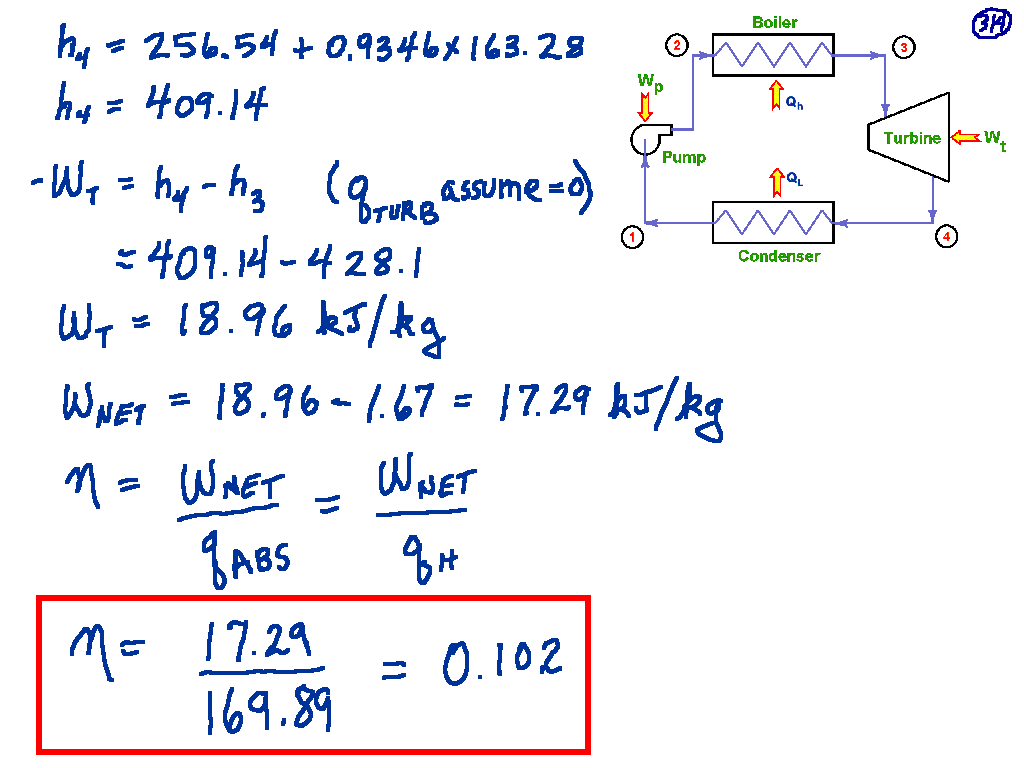 h4 = 256.54 + 0.9346 x 163.28
h4 = 409.14
-WT = h4 - h3 (qDTURB assume = 0)
= 409.14 - 428.1
WT = 18.96 kJ/kg
WNET = 18.96 - 1.67 = 17.29 kJ/kg
η = WNET / qABS = WNET / qH
η = 17.29 / 169.89 = 0.102
3/4
Boiler
2
3
Wp
Qh
Pump
Turbine
Wt
QL
1
4
Condenser